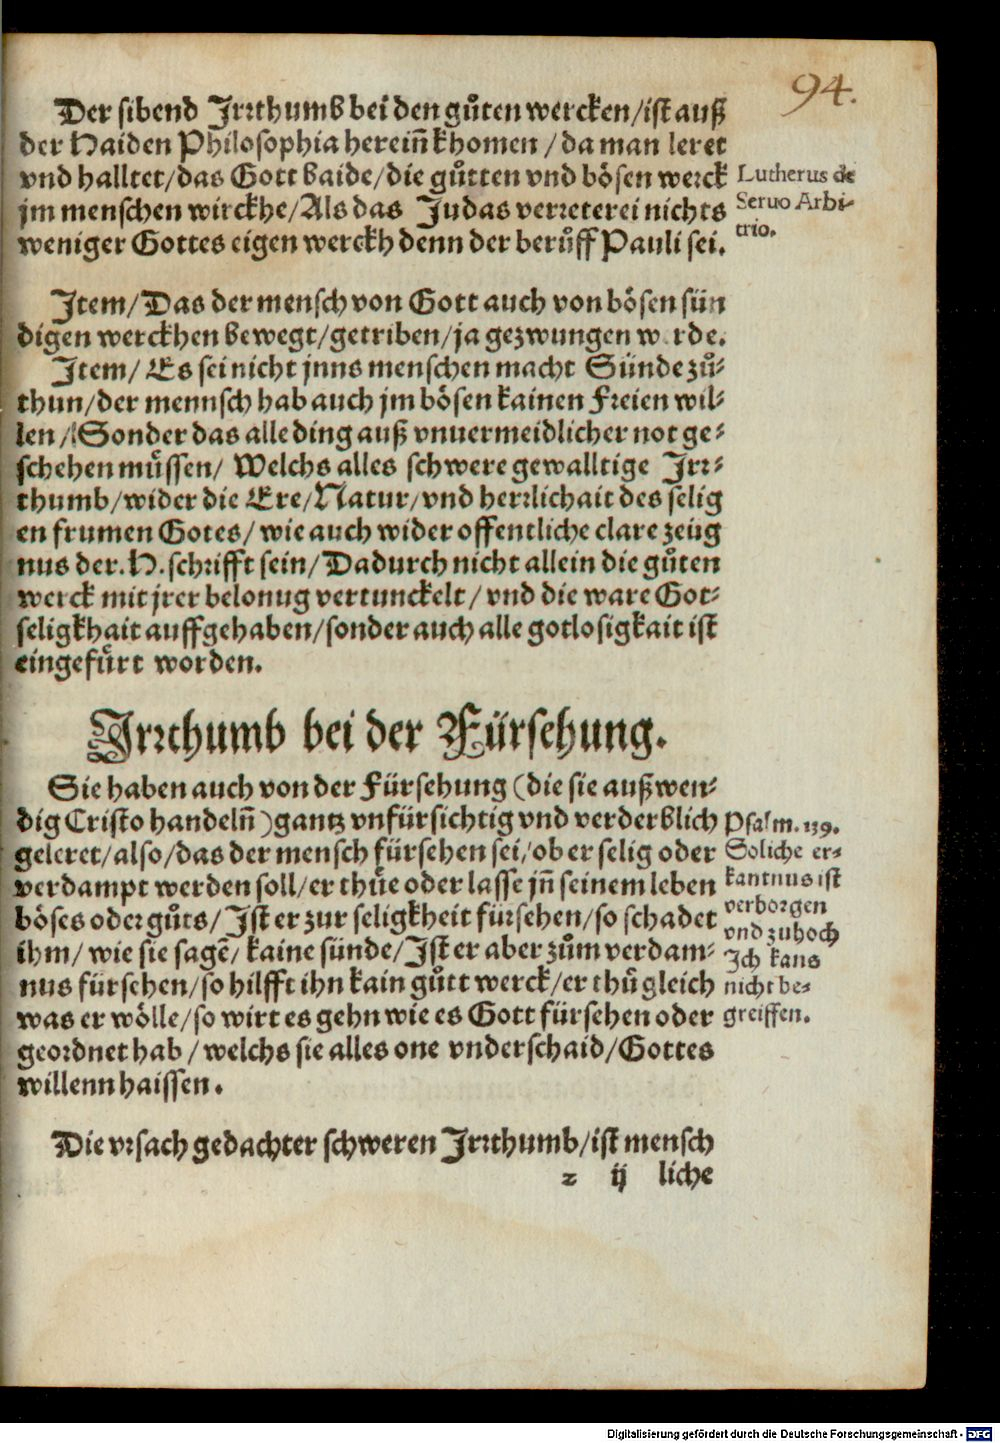 94.
Der sibend Jrrthumb bei den gůten wercken/ist auß
der Haiden Philosophia hereiñ khomen/da man leret
vnd halltet/das Gott baide/die gůtten vnd bösen werck
jm menschen wirckhe/Als das Judas verreterei nichts
weniger Gottes eigen werckh denn der berůff Pauli sei.
Lutherus de
Seruo Arbi-
trio.
Jtem/Das der mensch von Gott auch von bösen sün
digen werckhen bewegt/getriben/ja gezwungen w rde.
Jtem/Es sei nicht jnns menschen macht Sünde zů-
thun/der mennsch hab auch jm bösen kainen Freien wil-
len/Sonder das alle ding auß vnuermeidlicher not ge-
schehen müssen/Welchs alles schwere gewalltige Jrr-
thumb/wider die Ere/Natur/vnd herrlichait des selig
en frumen Gotes/wie auch wider offentliche clare zeüg
nus der.H.schrifft sein/Dadurch nicht allein die gůten
werck mit jrer belonug vertunckelt/vnd die ware Got-
seligkhait auffgehaben/sonder auch alle gotlosigkait ist
eingefürt worden.
Jrrthumb bei der Fürsehung.
Sie haben auch von der Fürsehung (die sie außwen-
dig Cristo handelñ)gantz vnfürsichtig vnd verderblich
geleret/also/das der mensch fürsehen sei/ob er selig oder
verdampt werden soll/er thüe oder lasse jñ seinem leben
böses oder gůts/Jst er zur seligkheit fürsehen/so schadet
ihm/wie sie sagẽ/kaine sünde/Jst er aber zům verdam-
nus fürsehen/so hilfft ihn kain gůtt werck/er thů gleich
was er wölle/so wirt es gehn wie es Gott fürsehen oder
geordnet hab/welchs sie alles one vnderschaid/Gottes
willenn haissen.
Psalm.139.
Soliche er-
kantnus ist
verborgen
vnd zuhoch
Jch kans
nicht be-
greiffen.
Die vrsach gedachter schweren Jrrthumb/ist mensch
z ij liche
Digitalisierung gefördert durch die Deutsche Forschungsgemeinschaft - DFG